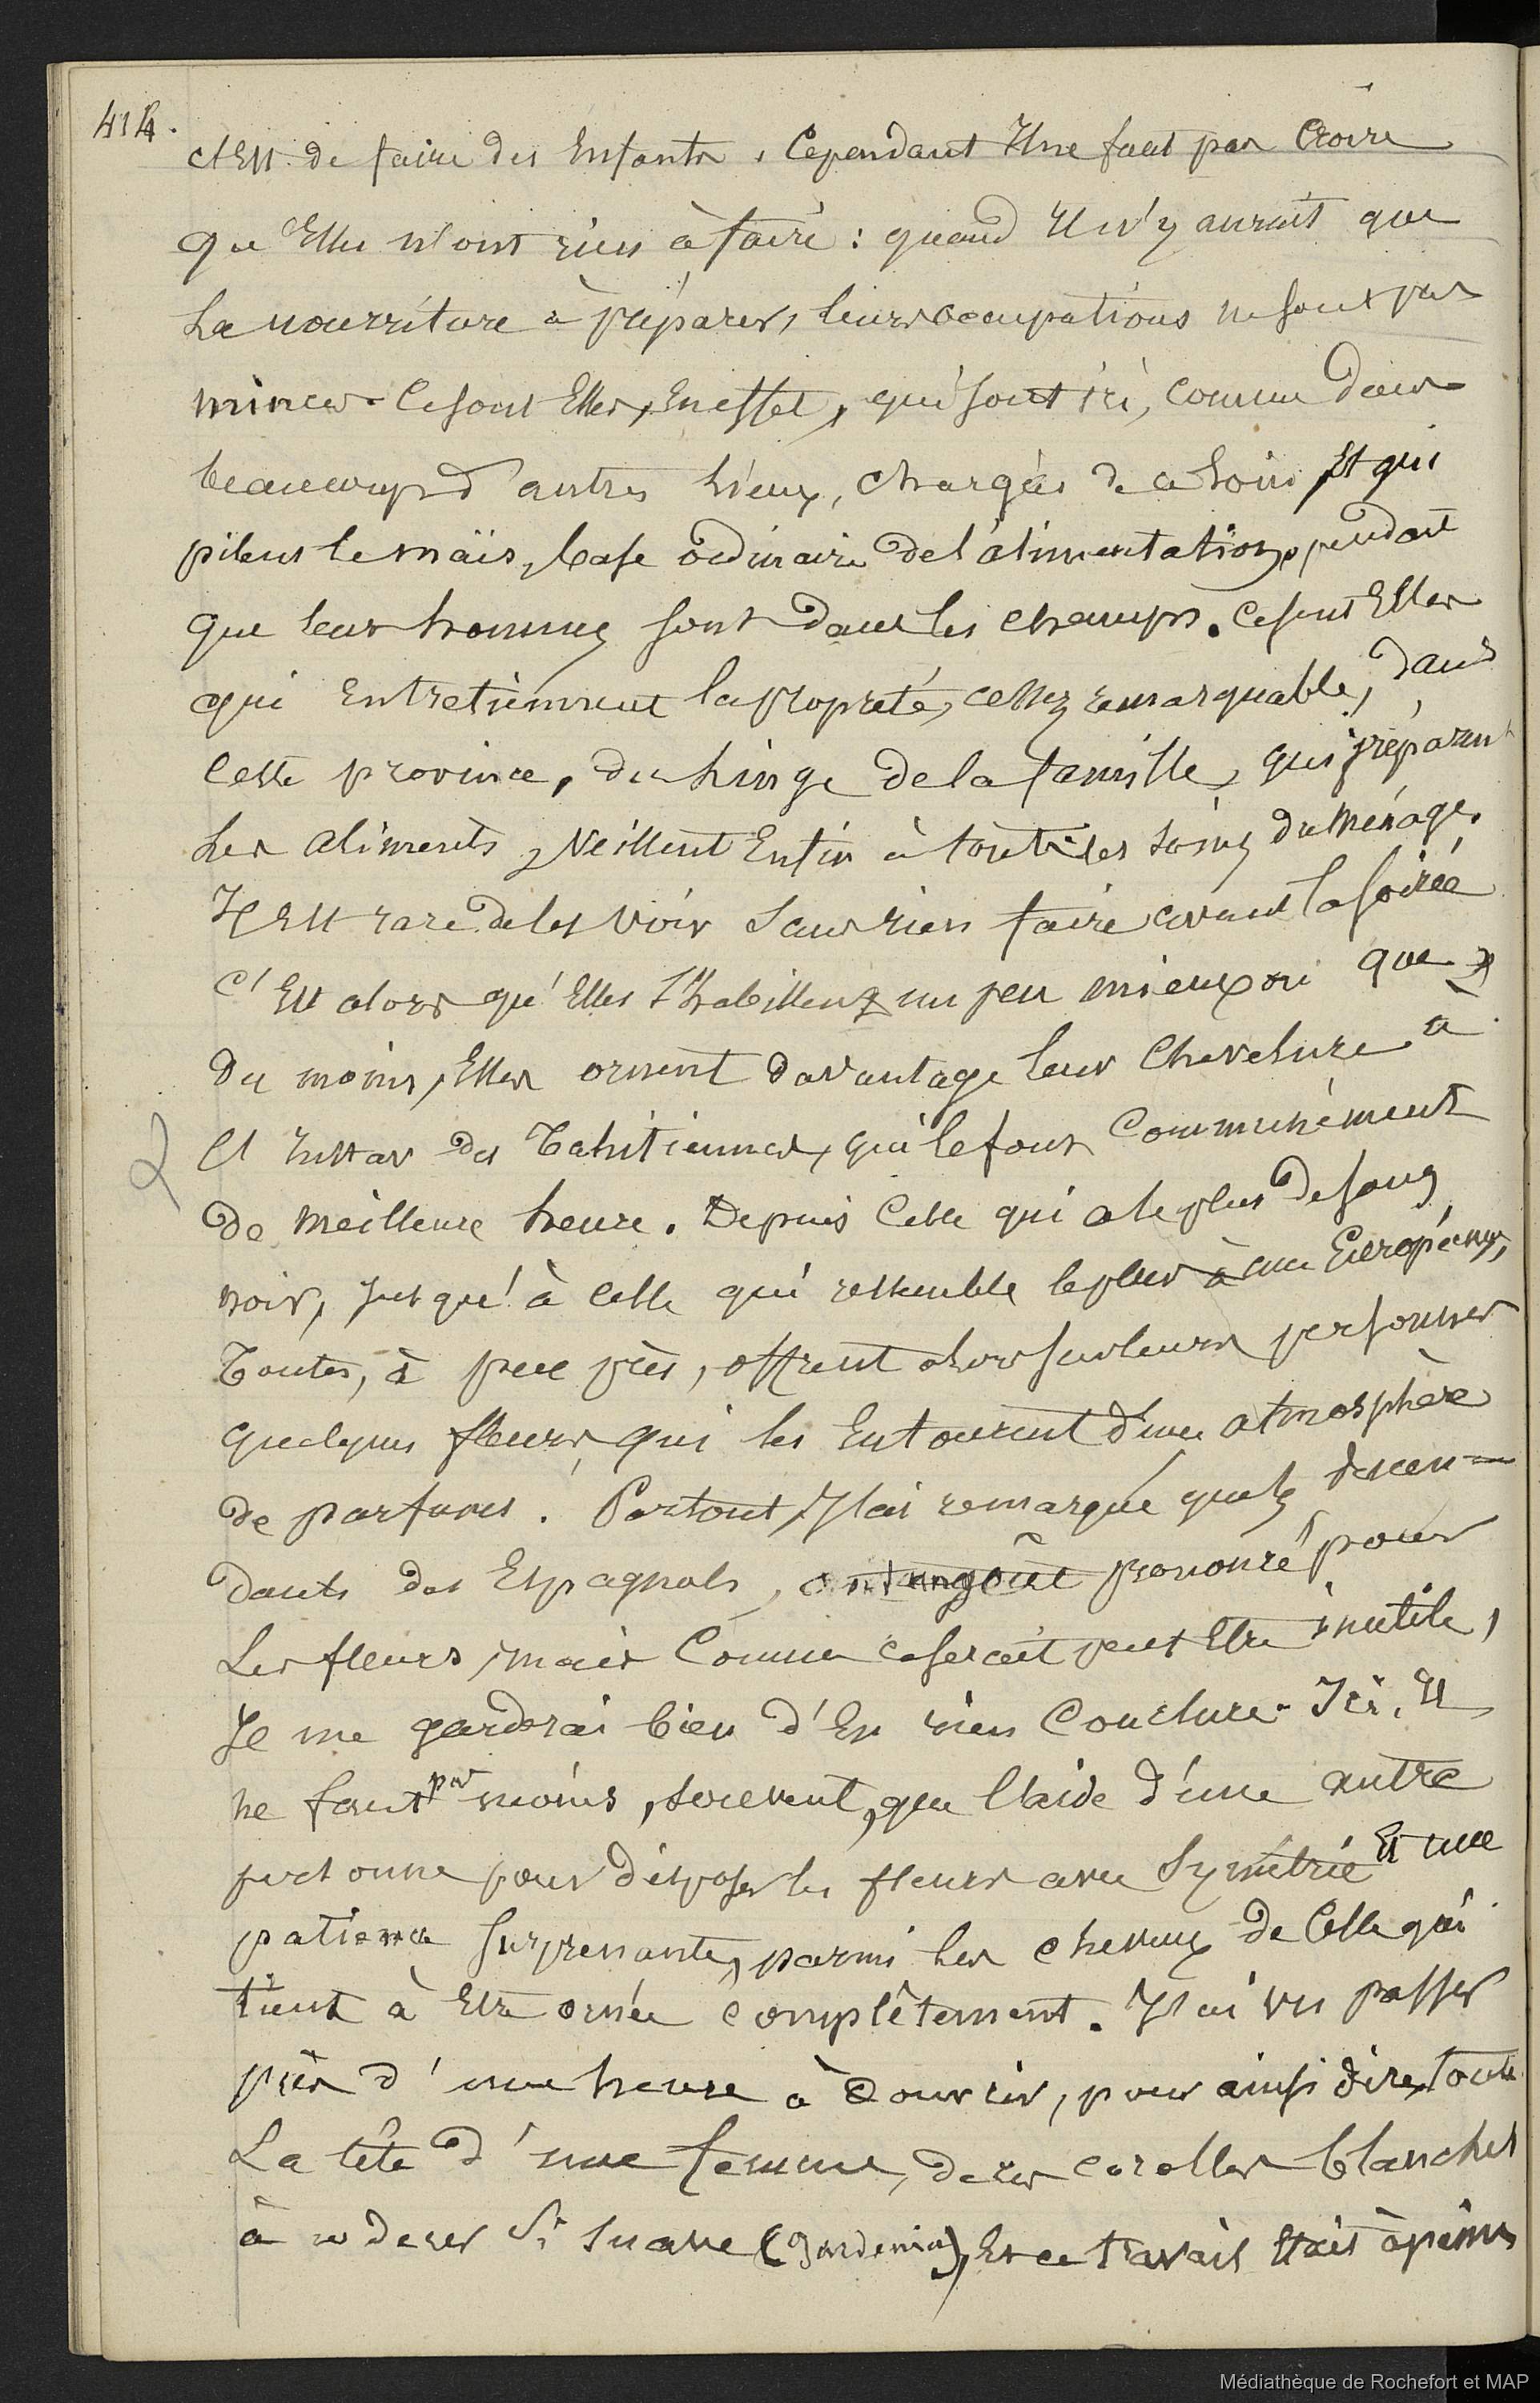 414.
c'est de faire des Enfants. Cependant Il ne faut pas Croire
que Elles n'ont rien à faire : quand Il n'y aurait que
La nourriture à préparer, leurs occupations ne sont pas
minces. Ce sont Elles, En effet, qui sont ici, comme dans
beaucoup d'autres lieux, chargées de ce soin Et qui
pilent le maïs, base ordinaire de l'alimentation, pendant
que leurs hommes sont dans les champs. Ce sont Elles
qui Entretiennent la propreté, assez remarquable, dans
Cette province, du linge de la famille, qui préparent
Les aliments, Veillent Enfin à tout les soins du Ménage.
Il Est rare de les voir sans rien faire avant la soirée
C'Est alors qu'Elles s'habillent un peu mieux ou que
du moins, Elles ornent davantage leur Chevelure à
l'Instar des Tahitiennes, qui le font Communément
de meilleure heure. Depuis Celle qui a le plus de sang
noir, jusqu'à Celle qui ressemble le plus à une Européenne,
Toutes, à peu près, offrent alors sur leurs personnes
quelques fleurs, qui les Entourent d'une atmosphère
de parfums. Partout, J'ai remarqué que les descen=
dants des Espagnols, ont un goût prononcé pour
Les fleurs, mais Comme ce serait peut Etre inutile,
Je me garderai bien d'En rien Conclure. Ici, Il
ne faut pas moins, souvent, que l'aide d'une autre
personne pour disposer les fleurs avec Symétrie Et une
patience surprenante, parmi les cheveux de Celle qui
tient à Etre ornée complêtement. J'ai vu passer
près d'une heure à Couvrir, pour ainsi dire, toute
La tête d'une femme, de ces corolles blanches
à odeur si suave (Gardenia), Et ce travail était à peine
Médiathèque de Rochefort et MAP